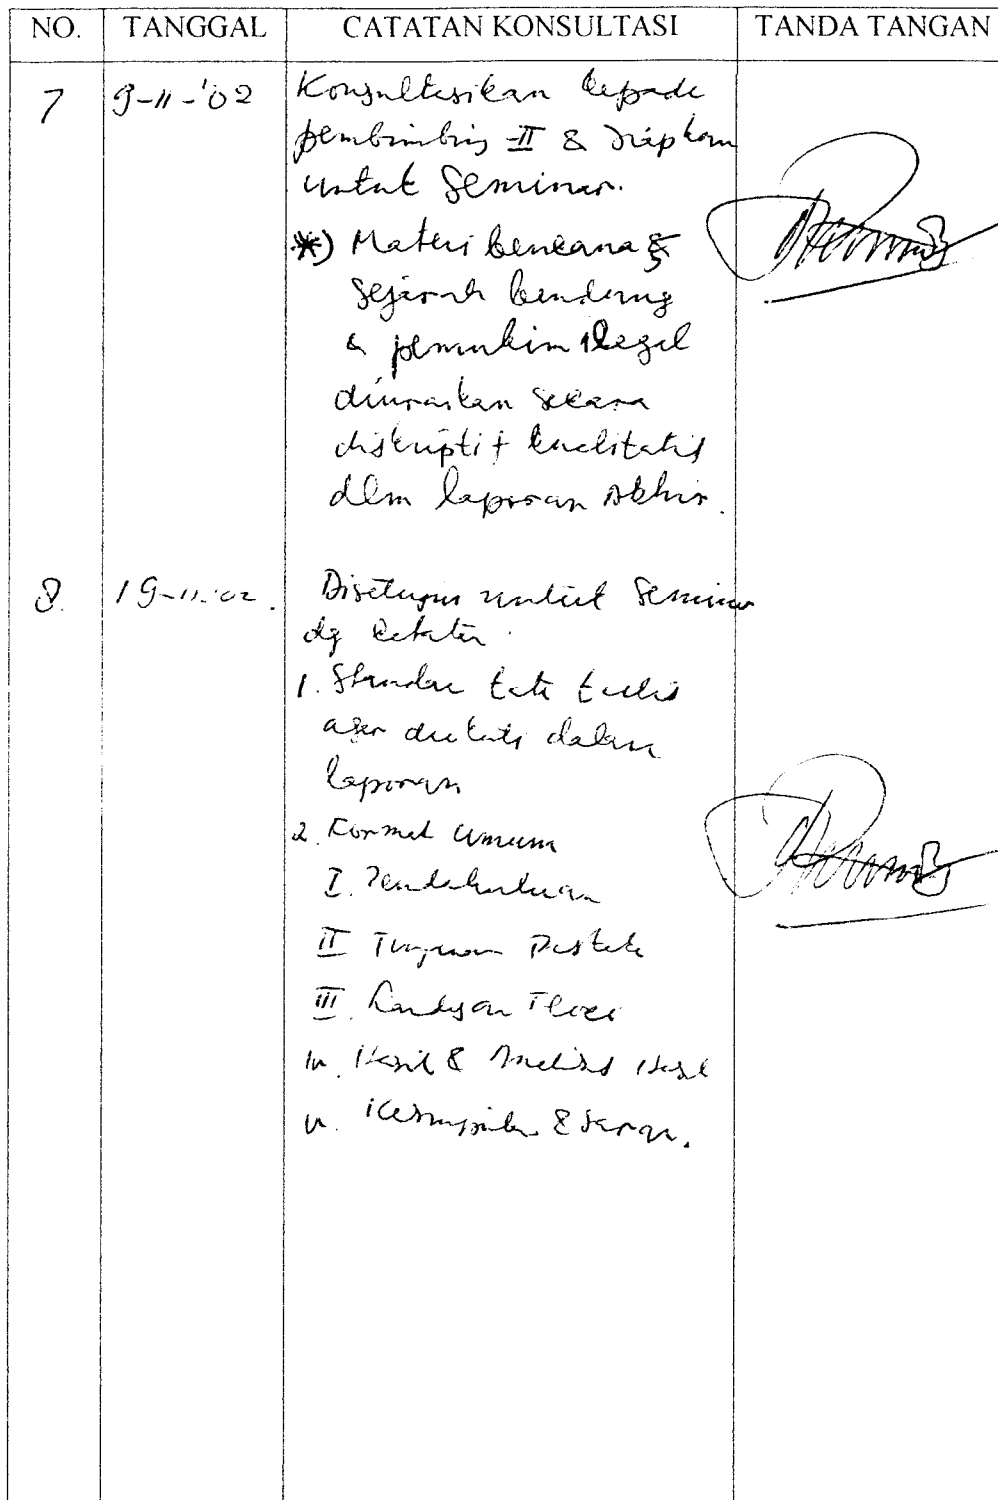 NO. TANGGAL CATATAN KONSULTASI TANDA TANGAN
7 9-11-'02 Konsultasikan kepada
pembimbing II & siapkan
untuk Seminar.
*) Materi bencana &
sejarah
& pemukim ilegal
diuraikan secara
diskriptif kualitatif
dlm laporan Akhir.
8. 19-11-02. Disetujui untuk Seminar
dg
1. Standar tata tulis
agar ditaati dalam
laporan
2. Format umum
I. Pendahuluan
II Tinjauan Pustaka
III. Landasan Teori
IV. Hasil & Analisis Hasil
V. Kesimpulan & Saran.